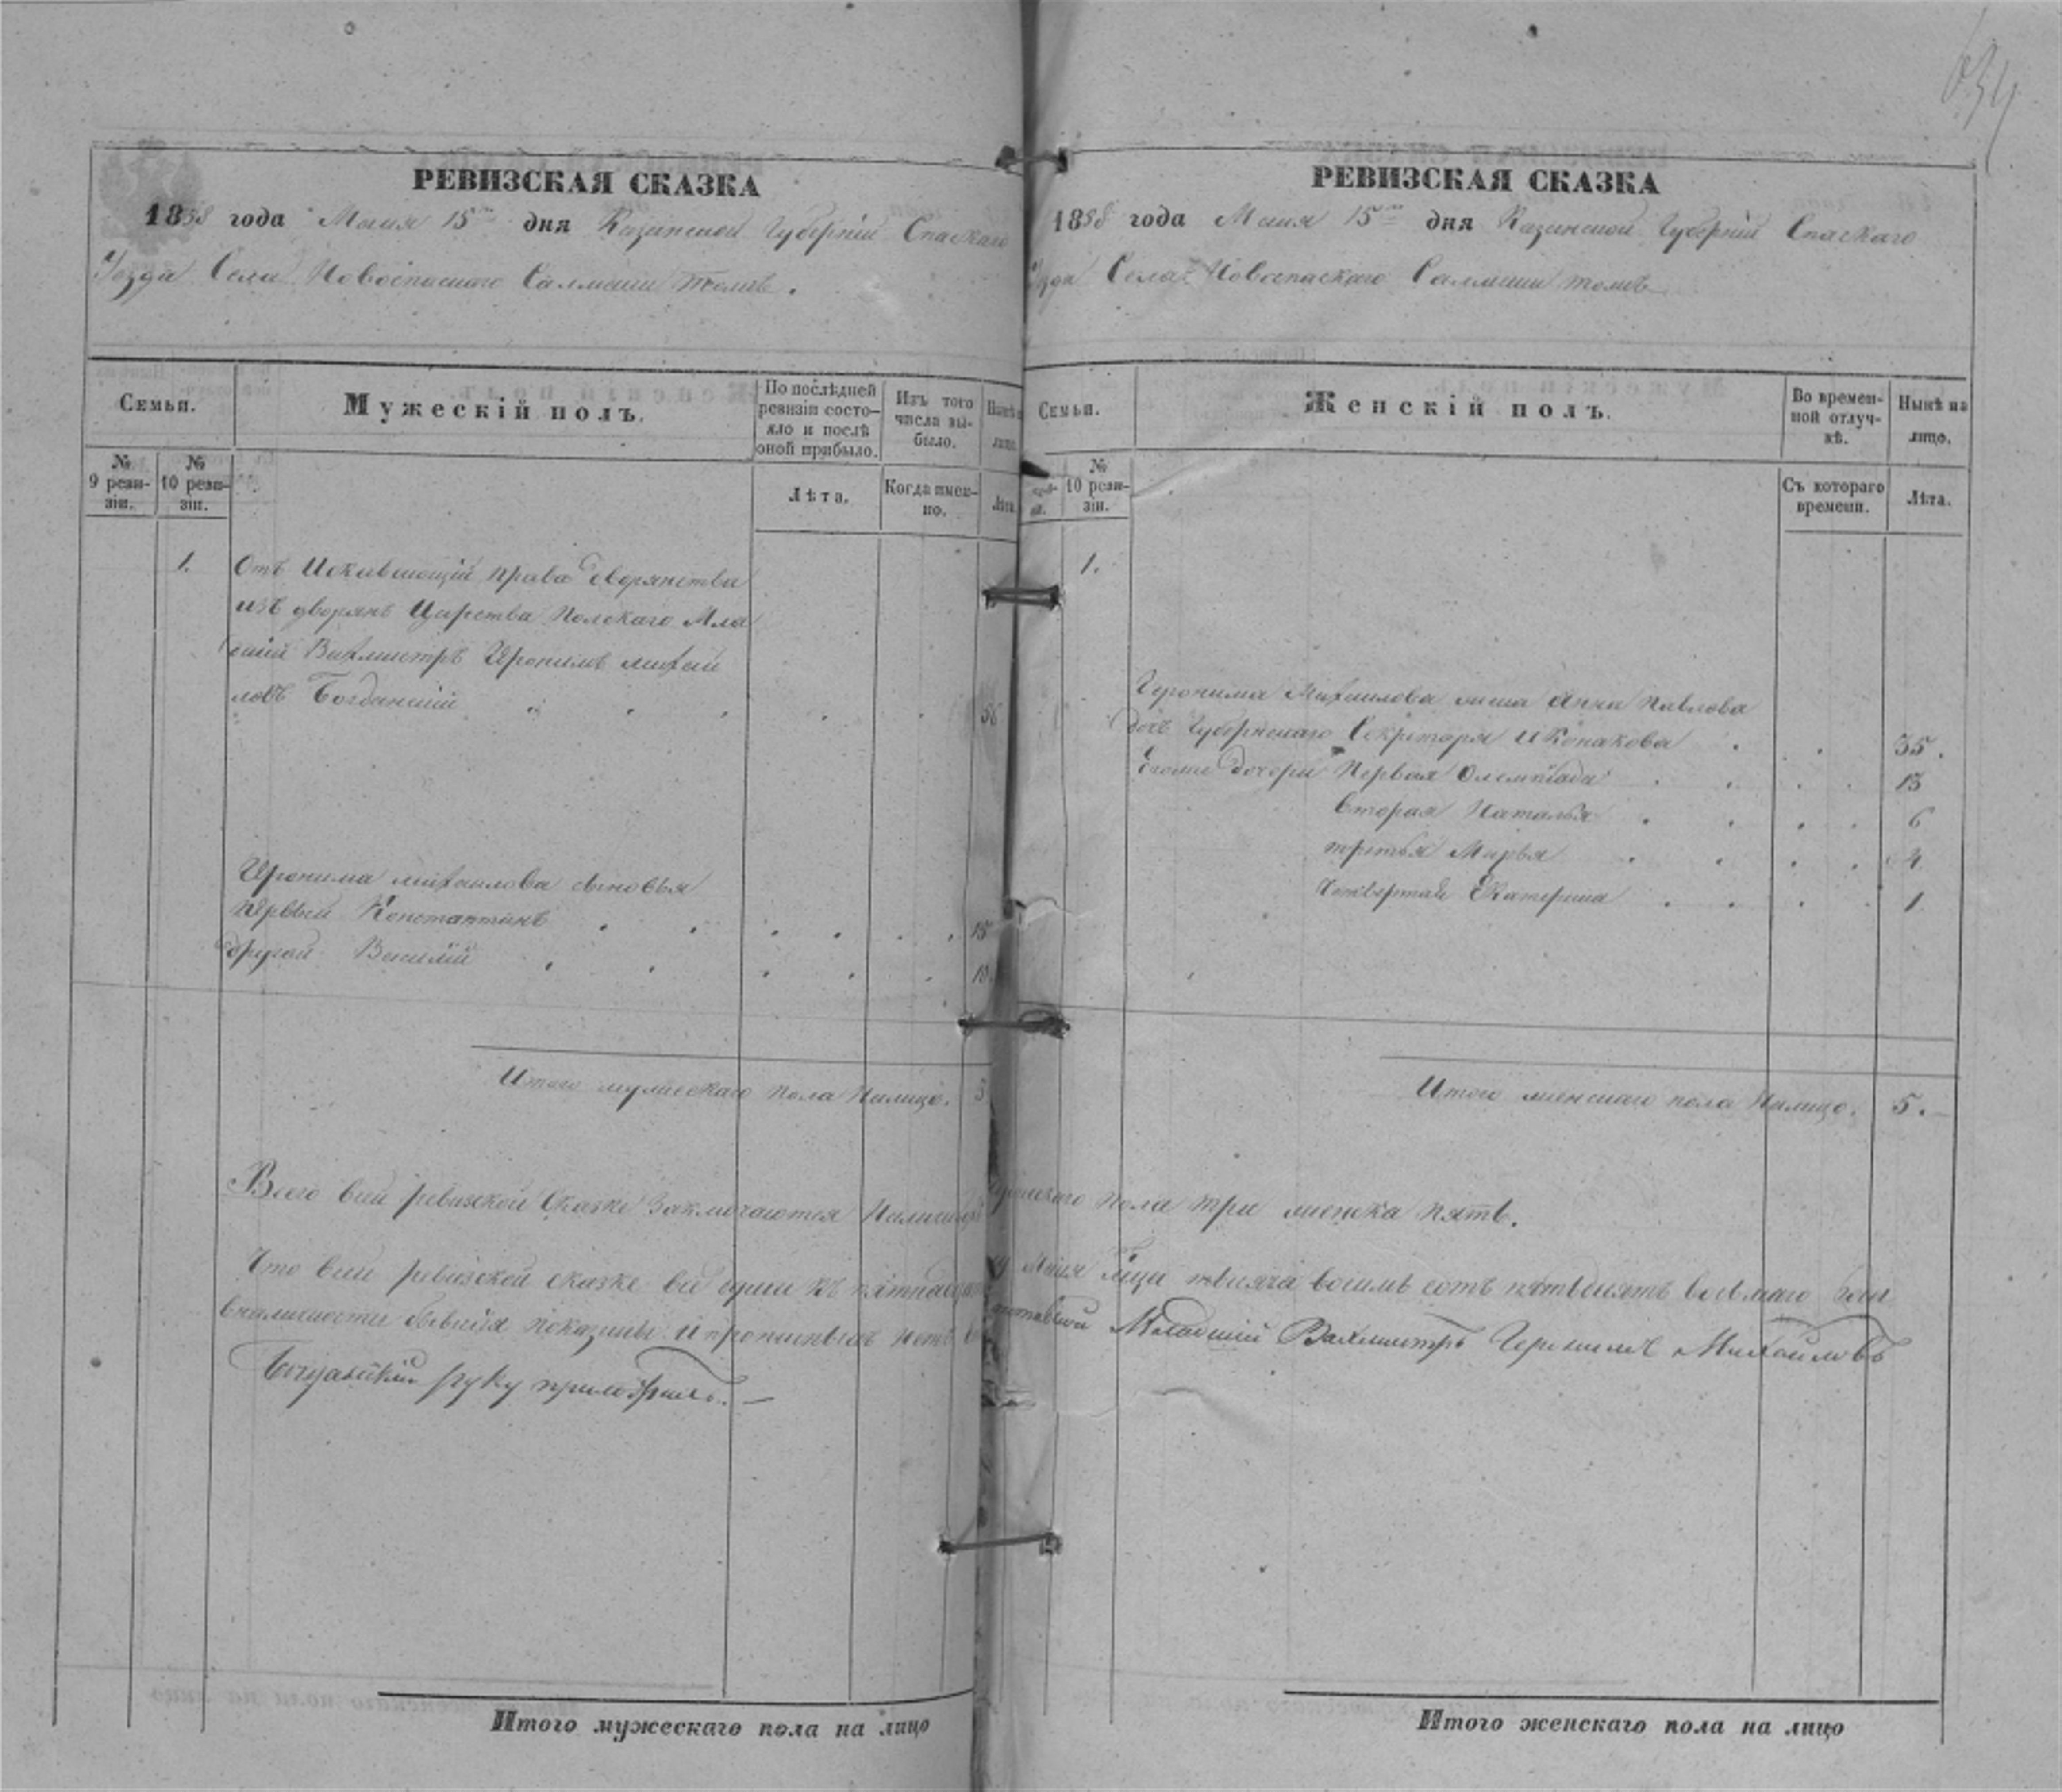 РЕВИЗСКАЯ СКАЗКА
1858 года Маия 15го дня Казанской Губерніи Спаскаго
Уезда Села Новоспаскаго Салмаши тожъ.
Семьи.
Мужескій полъ.
По послѣдней ревизіи состояло и послѣ оной прибыло.
Изъ того числа выбыло.
№ 9 ревизіи.
№ 10 ревизіи.
Лѣта.
Когда именно.
Лѣта.
1.
Отъ права дворянства
изъ дворянъ Царства Полскаго Мла
дшій Вахмистръ Иронимъ михаи
ловъ Богданскій 56
Иронима михаилова сыновья
первый Константинъ 15
другой Василій 10
Итого мужескаго пола Налицо. 3
РЕВИЗСКАЯ СКАЗКА
1858 года Маия 15го дня Казанской Губерніи Спаскаго
Села Новоспаскаго Салмаши тожъ
Семьи.
Женскій полъ.
Во временной отлучкѣ.
Нынѣ на лицо.
№ 10 ревизіи.
Съ котораго времени.
Лѣта.
1.
Иеронима Михаилова жена Анна Павлова
дочь Губернскаго Секретаря Иконакова 35.
дочери Первая Олемпіада 13
Вторая Наталья 6
третья Марья 4
Четвертая Екатерина 1
Итого женскаго пола Налицо. 5.
Всего всей ревизской Сказке Заключаются пола три женска пять.
Что всей ревизской сказке все души къ Маия тысяча восимь сотъ пятьдесятъ восьмаго года
вналичности бывшія показаны и прописныхъ нетъ Младшій Вахмистръ Иеронимъ Михаиловъ
Богданскій руку приложилъ.—
Итого мужескаго пола на лицо
Итого женскаго пола на лицо